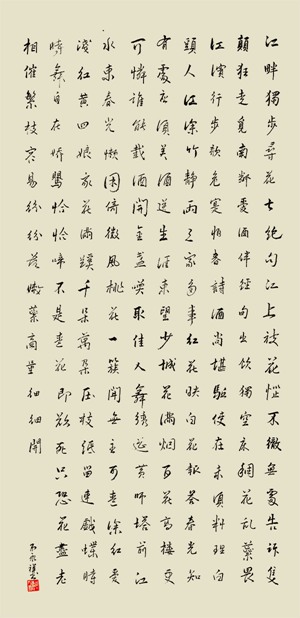 江畔獨步尋花七絕句江上被花惱不徹無處告訴隻
顛狂走覓南鄰愛酒伴經旬出飲獨空床稠花亂蘂畏
江濱行步欹危實怕春詩酒尚堪驅使在未須料理白
頭人江深竹靜兩三家多事紅花映白花報答春光知
有處應須美酒送生涯東望少城花滿烟百花高樓更
可憐誰能載酒開金盞喚取佳人舞繡筵黃師塔前江
水東春光懶困倚微風桃花一簇開無主可愛深紅愛
淺紅黃四娘家花滿蹊千朵萬朵壓枝低留連戲蝶時
時舞自在嬌鶯恰恰啼不是愛花即欲死只恐花盡老
相催繁枝容易紛紛落嫩蘂商量細細開